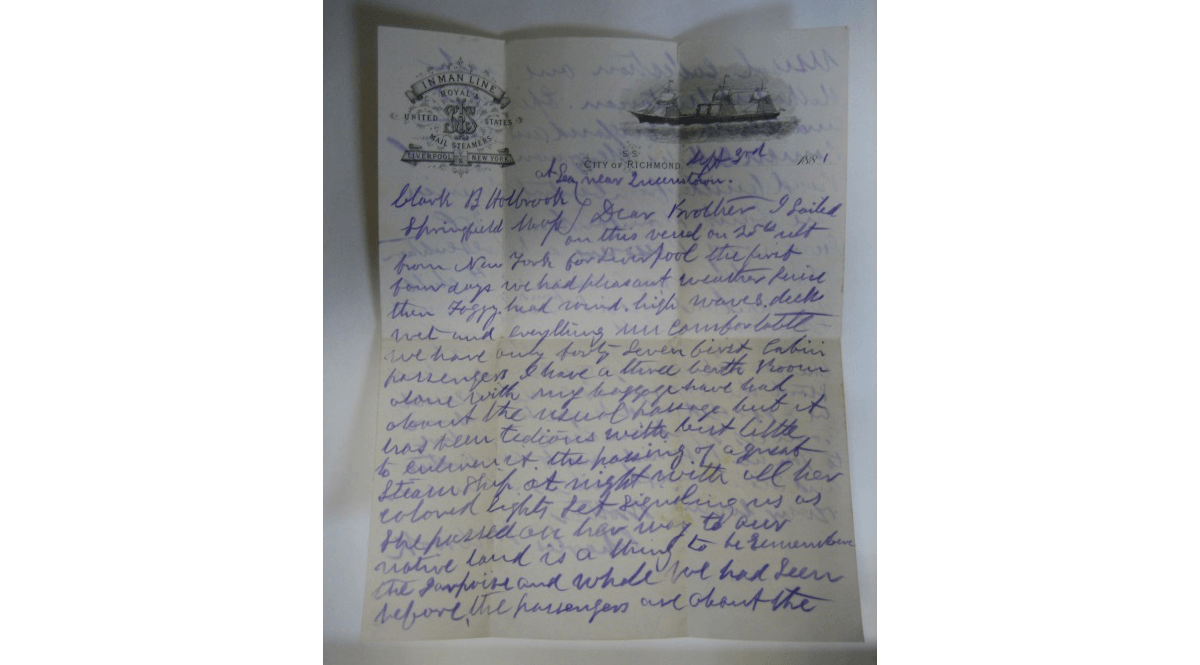 INMAN LINE
ROYAL &
UNITED STATES
MAIL STEAMERS
LIVERPOOL NEW YORK
S.S.
CITY OF RICHMOND Sept 3rd 1881
at Sea near Queenstown.
Clark B Holbrook
Springfield Mass Dear Brother I Sailed
on this vessel on 25th ult
from New York for Liverpool the first
four days we had pleasant weather Since
then Foggy. head wind. high waves. deck
wet and everything un comfortable
we have only forty Seven first Cabin
passengers I have a three berth Room
alone with my baggage have had
about the usual passage but it
has been tedious with but little
to enliven it. the passing of a great
Steam Ship at night with all her
colored lights Set Signaling us as
She passed on her way to our
native land is a thing to be
the and Whale We had Seen
before, the passengers are about the